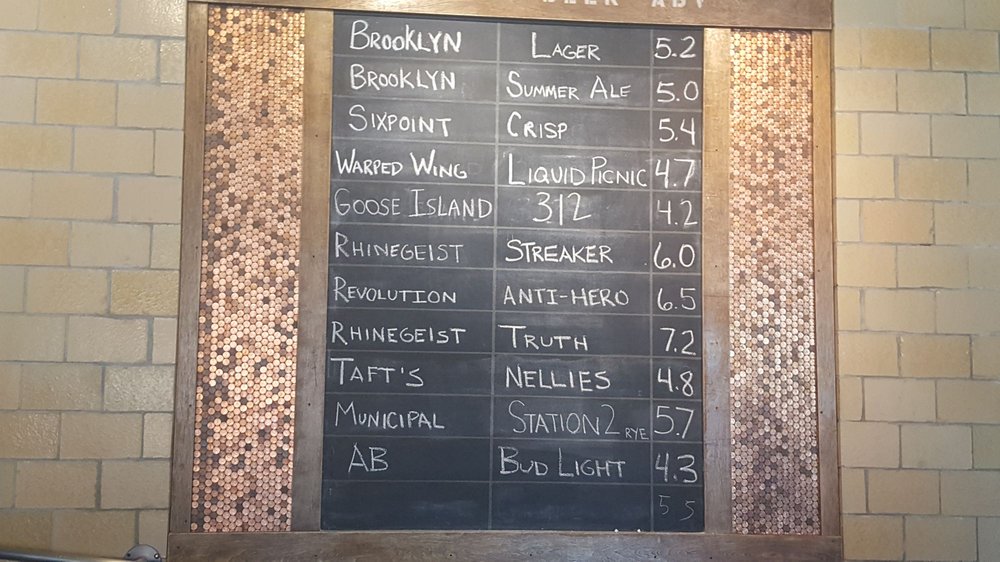 BEER ABV
BROOKLYN LAGER 5.2
BROOKLYN SUMMER ALE 5.0
SIXPOINT CRISP 5.4
WARPED WING LIQUID PICNIC 4.7
GOOSE ISLAND 312 4.2
RHINEGEIST STREAKER 6.0
REVOLUTION ANTI-HERO 6.5
RHINEGEIST TRUTH 7.2
TAFT'S NELLIES 4.8
MUNICIPAL STATION 2 RYE 5.7
AB BUD LIGHT 4.3
5 5